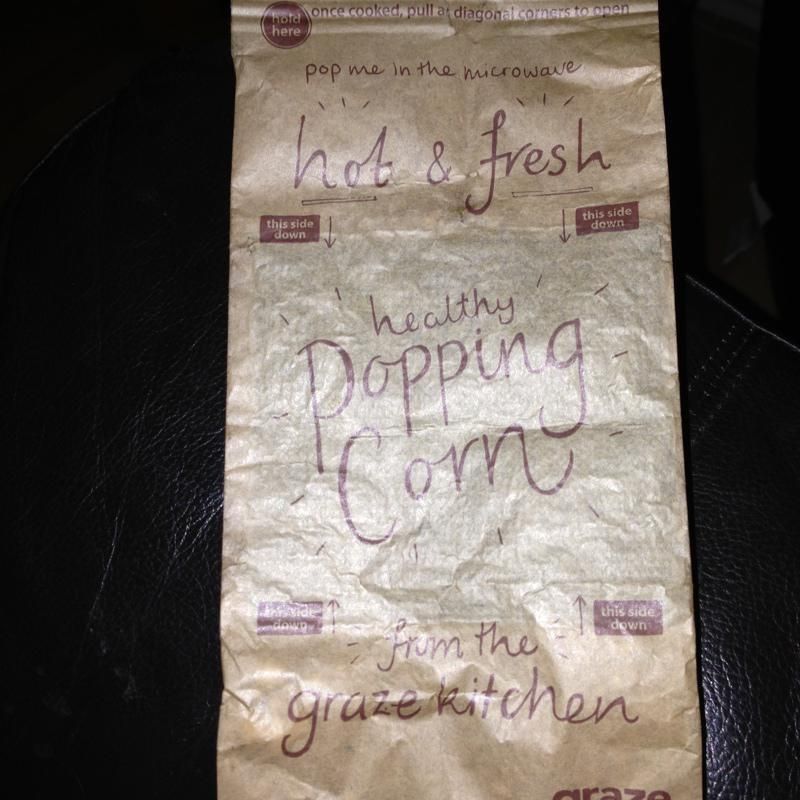 hold here
once cooked, pull at diagonal corners to open
pop me in the microwave
hot & fresh
this side down
this side down
healthy
Popping
Corn
this side down
this side down
from the
graze kitchen
graze